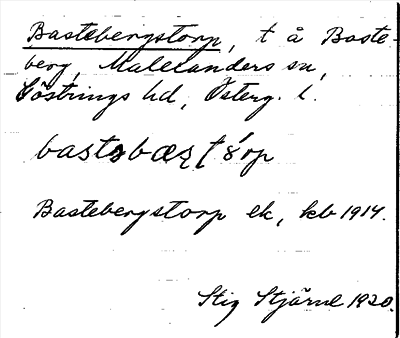 Bastebergstorp, t å Baste-
berg, Mallelanders sn,
Göstrings hd, Österg. l.
Bastebergstorp ek, kb 1914.
Stig Stjärne 1920.